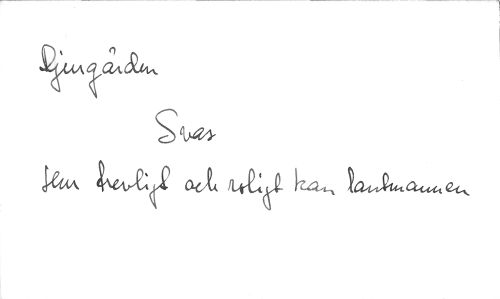 Djurgården
Svar
Hur trevligt och roligt kan lantmannen